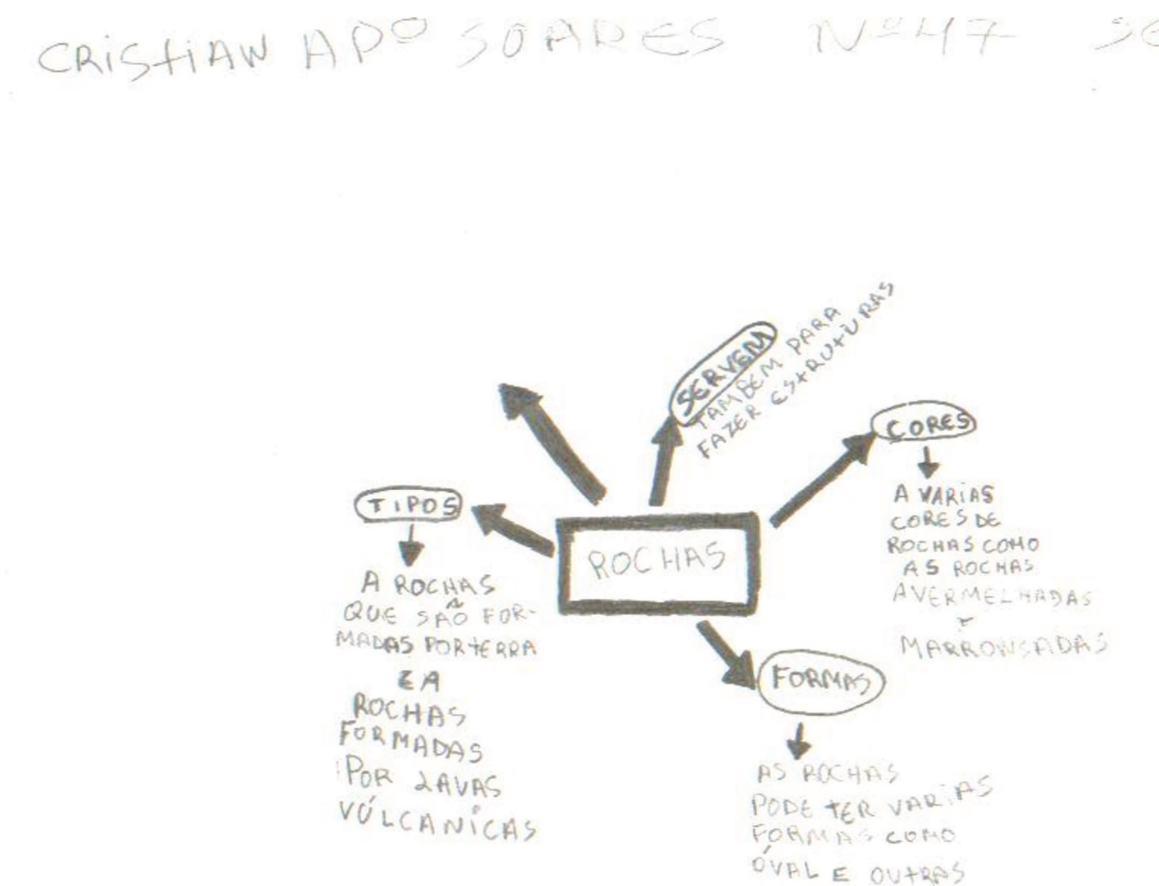 CRISTIAN APº SOARES Nº47 SE
SERVEM
TAMBEM PARA
FAZER ESTRUTURAS
CORES
A VARIAS
CORES DE
ROCHAS COMO
AS ROCHAS
AVERMELHADAS
E
MARRONSADAS
TIPOS
A ROCHAS
QUE SÃO FOR-
MADAS POR TERRA
E A
ROCHAS
FORMADAS
POR LAVAS
VÚLCANICAS
ROCHAS
FORMAS
AS ROCHAS
PODE TER VARIAS
FORMAS COMO
ÓVAL E OUTRAS